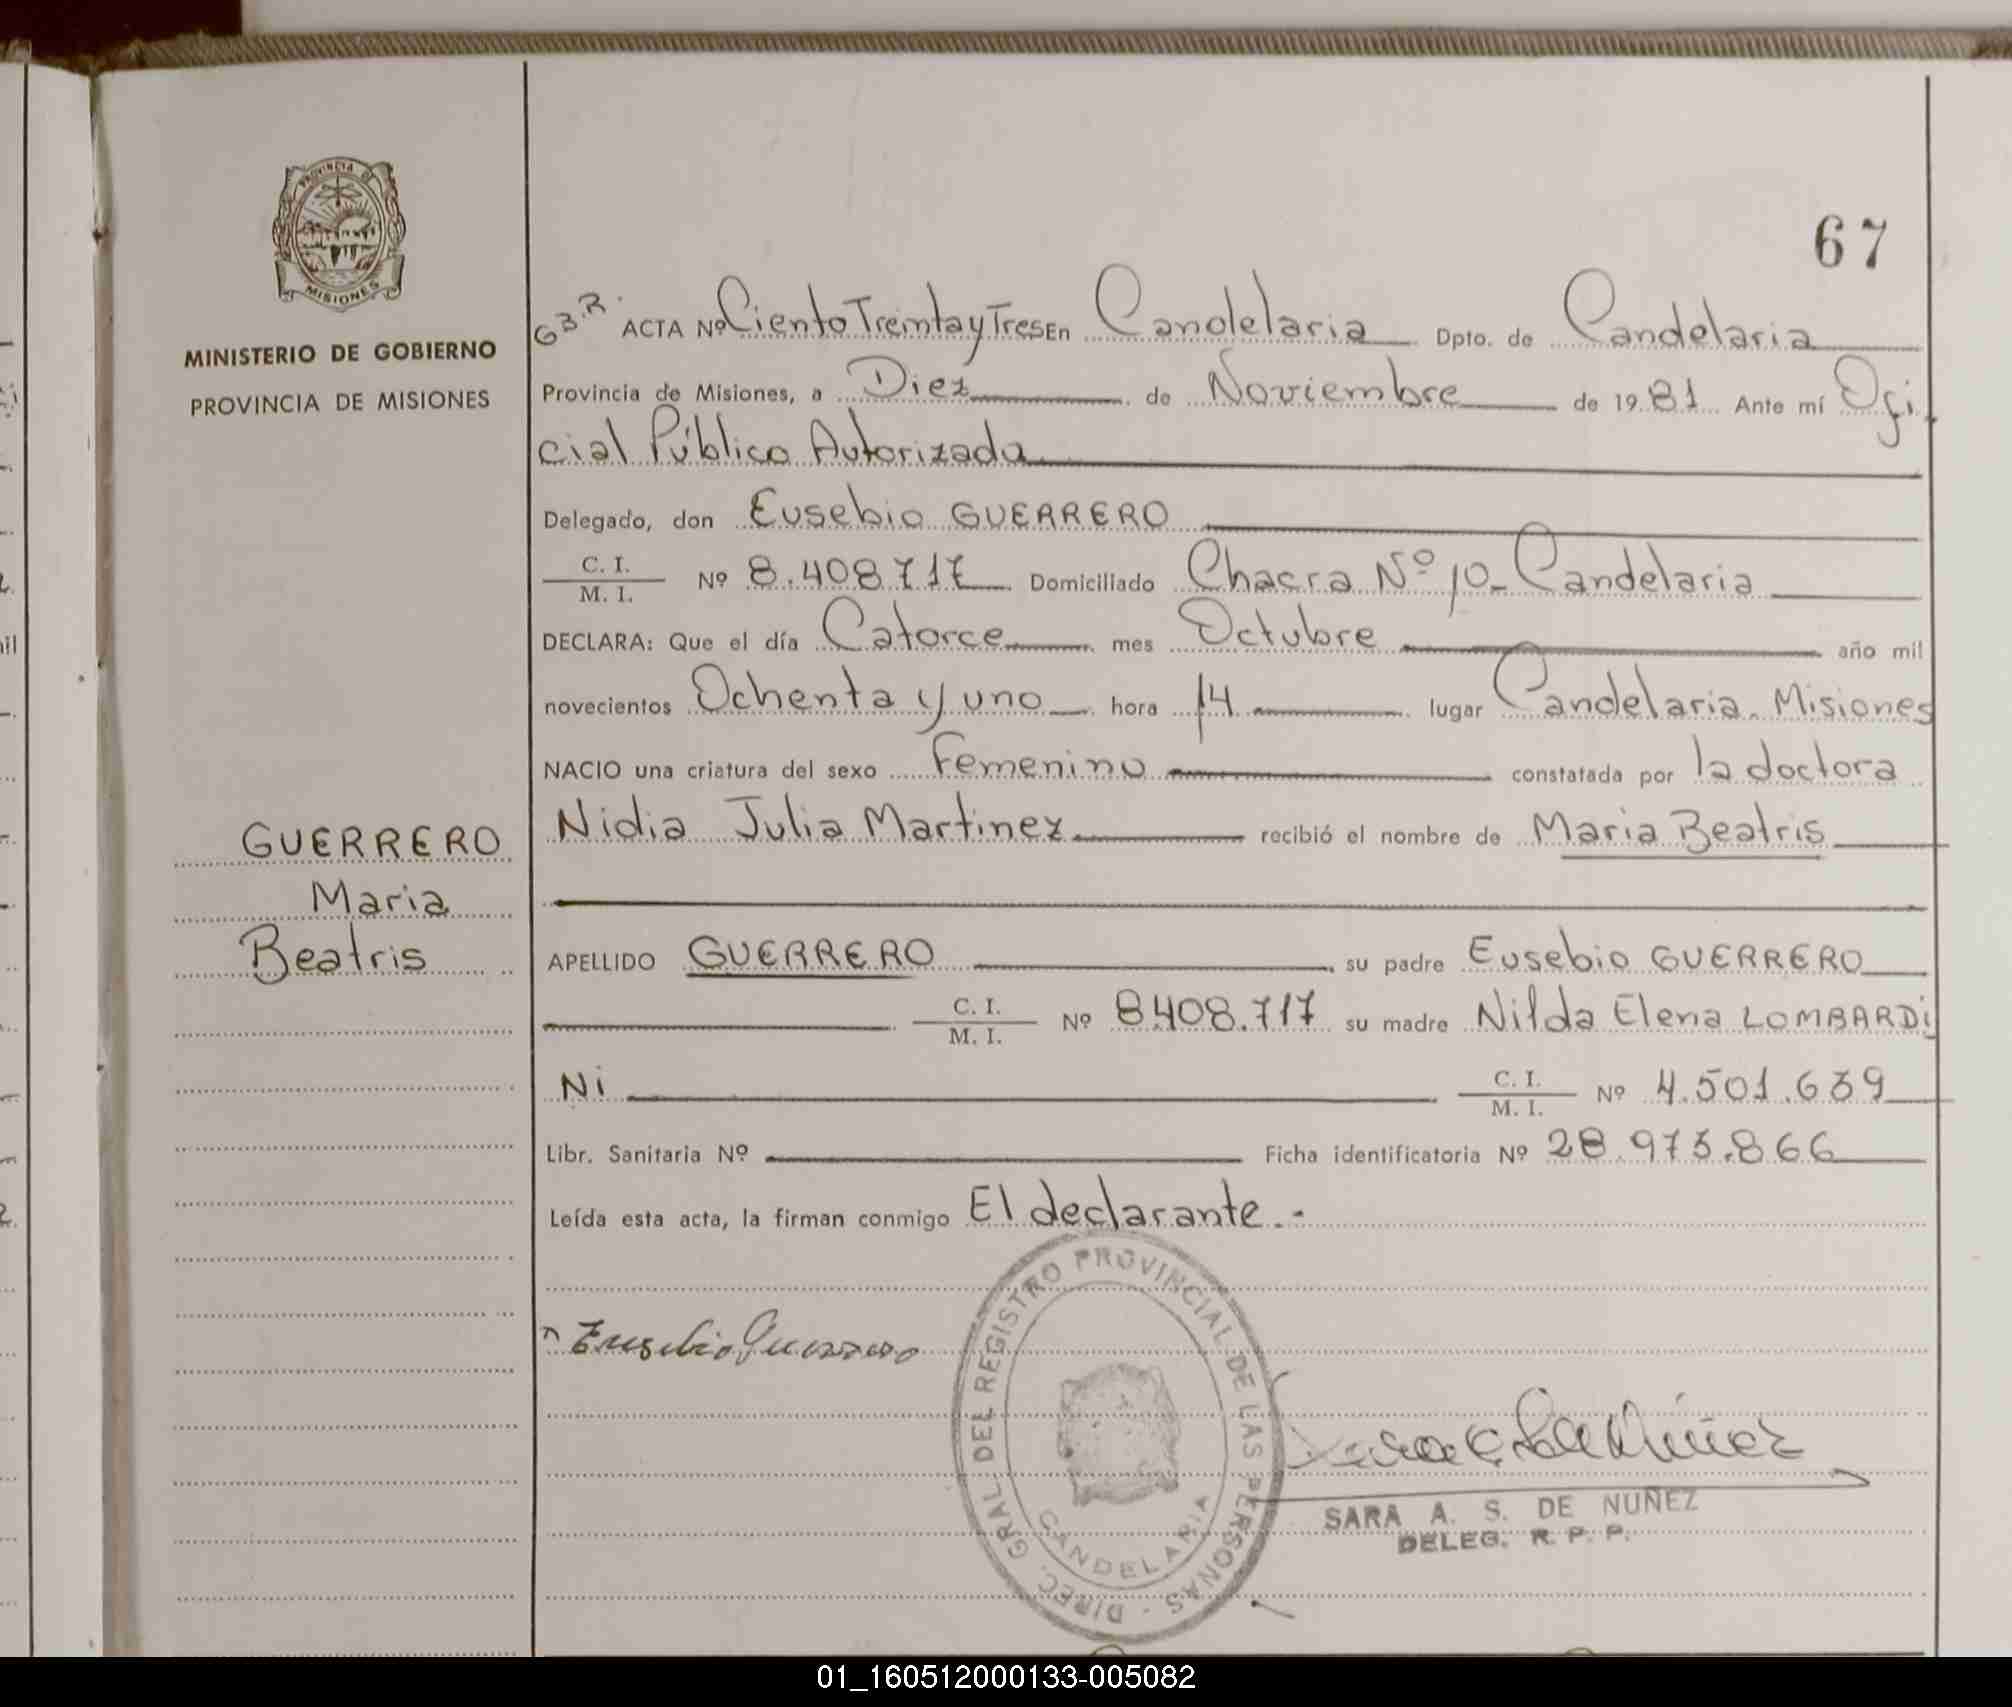 PROVINCIA DE
MISIONES
MINISTERIO DE GOBIERNO
PROVINCIA DE MISIONES
GUERRERO
Maria
Beatris
67
G3.R. ACTA Nº Ciento Treinta y Tres En Candelaria Dpto. de Candelaria
Provincia de Misiones, a Diez de Noviembre de 1981 Ante mí Ofi
cial Público Autorizada
Delegado, don Eusebio GUERRERO
C. I.
M. I. Nº 8.408.717 Domiciliado Chacra Nº 10-Candelaria
DECLARA: Que el día Catorce mes Octubre año mil
novecientos Ochenta y uno hora 14 lugar Candelaria. Misiones
NACIO una criatura del sexo Femenino constatada por la doctora
Nidia Julia Martinez recibió el nombre de Maria Beatris
APELLIDO GUERRERO su padre Eusebio GUERRERO
C. I.
M. I. Nº 8.408.717 su madre Nilda Elena LOMBARDI
Ni C. I.
M. I. Nº 4.501.639
Libr. Sanitaria Nº Ficha identificatoria Nº 28.973.866
Leída esta acta, la firman conmigo El declarante.-
Eusebio Guerrero
DIREC. GRAL DEL REGISTRO PROVINCIAL DE LAS PERSONAS -
CANDELARIA
SARA A. S. DE NUÑEZ
DELEG. R. P. P.
01_160512000133-005082